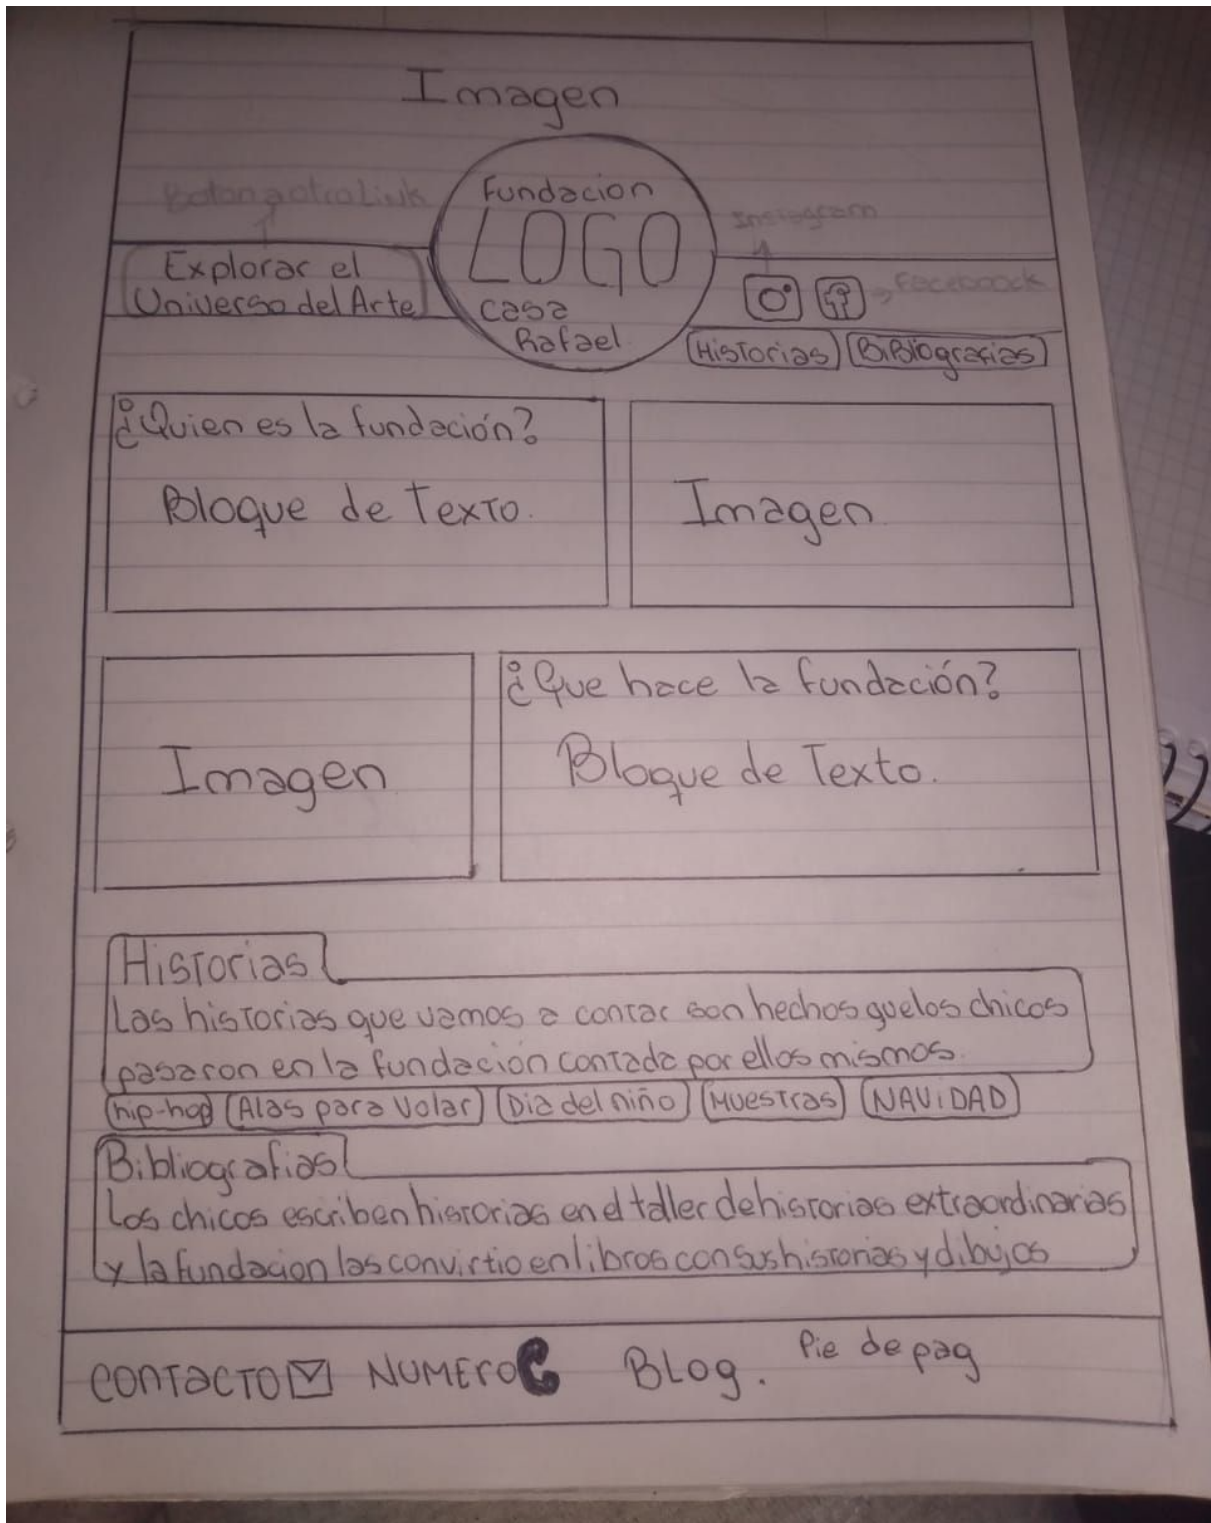 Imagen
Boton a otro Link
Fundacion
LOGO
casa
Rafael
Instagram
Faceboock
Explorar el
Universo del Arte
Historias
BiBliografias
¿Quien es la fundación?
Bloque de Texto.
Imagen
Imagen
¿Que hace la fundación?
Bloque de Texto.
Historias
Las historias que vamos a contar son hechos que los chicos
pasaron en la fundación contada por ellos mismos.
hip-hop Alas para Volar Dia del niño Muestras NAViDAD
Bibliografias
Los chicos escriben historias en el taller de historias extraordinarias
y la fundacion las convirtio en libros con sus historias y dibujos
CONTACTO NUMEro BLog. Pie de pag